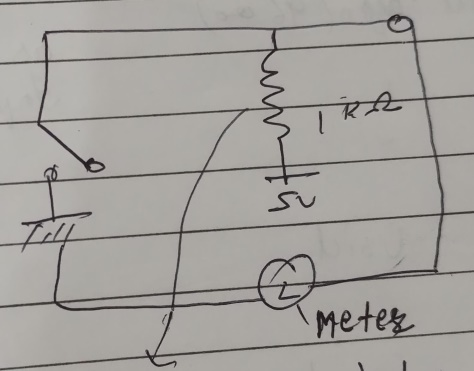 1 kΩ
5V
Meter